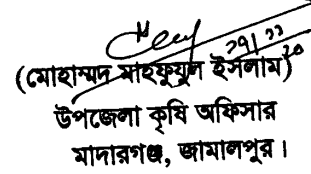 ২৭/১১/২০
(মোহাম্মদ মাহফুযুল ইসলাম)
উপজেলা কৃষি অফিসার
মাদারগঞ্জ, জামালপুর।